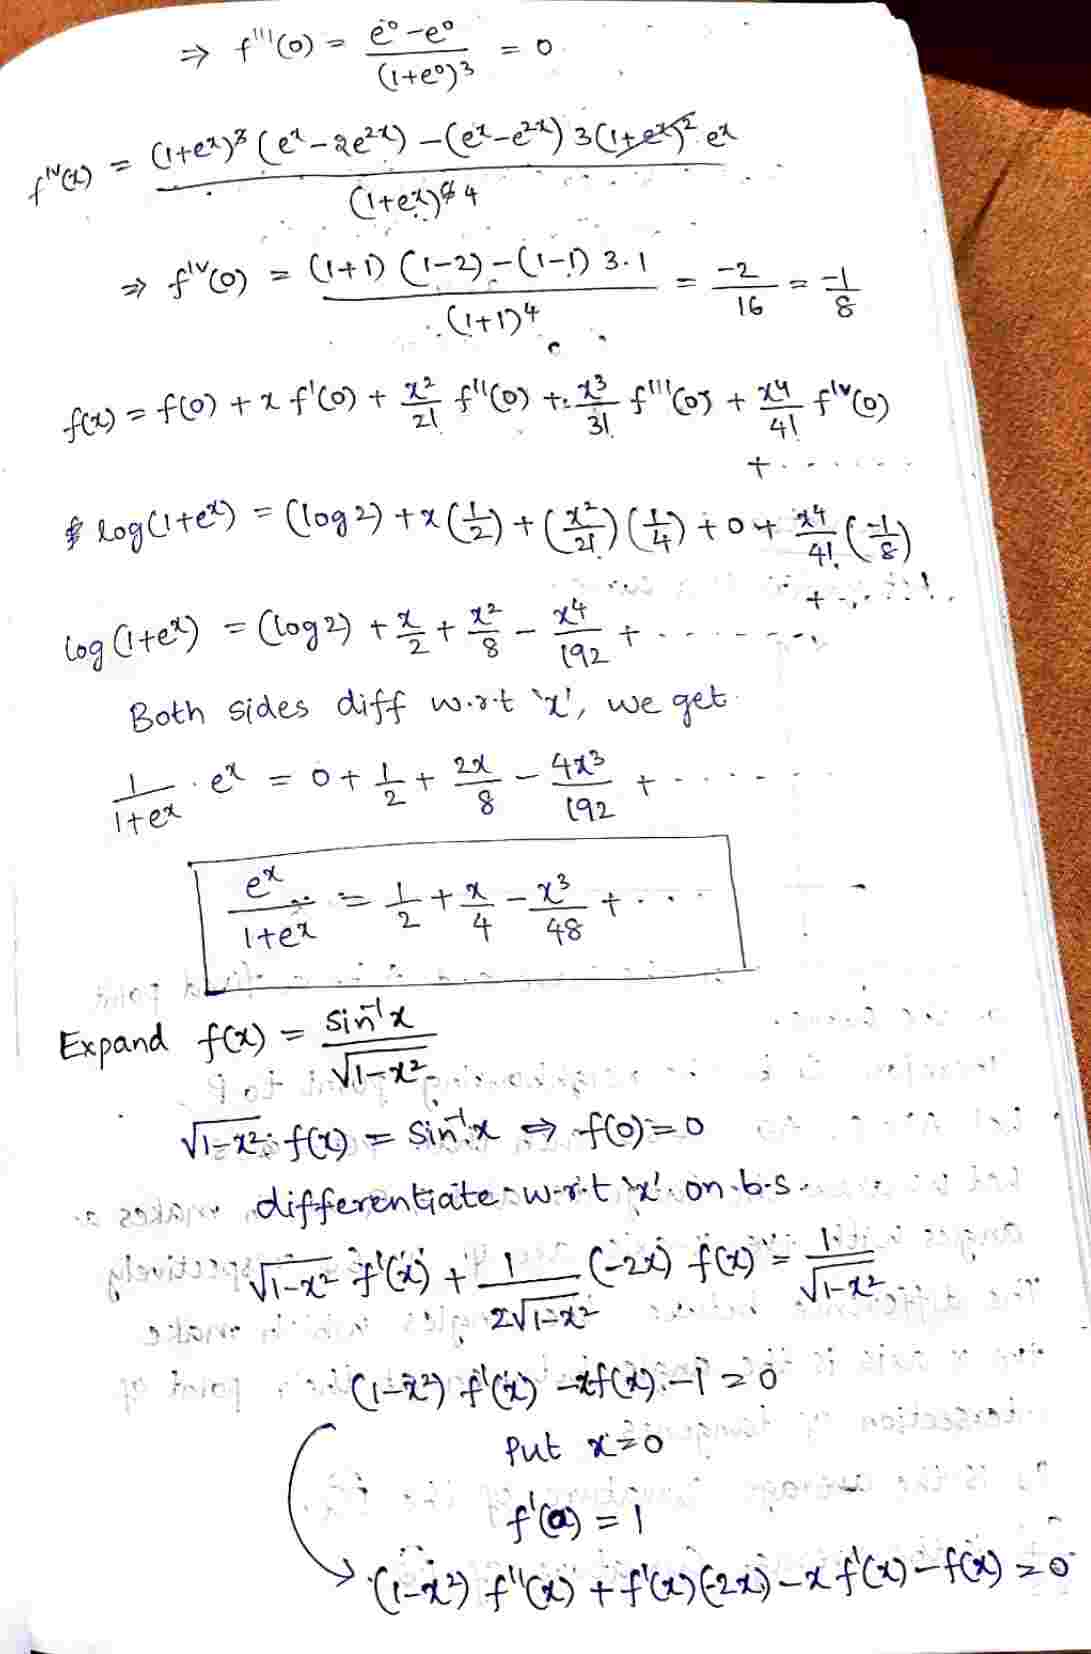 ⇒ f'''(0) = (e⁰ - e⁰)/(1+e⁰)³ = 0
f^iv(x) = ((1+eˣ)³ (eˣ - 2e²ˣ) - (eˣ - e²ˣ) 3(1+eˣ)² eˣ)/(1+eˣ)⁴
⇒ f^iv(0) = ((1+1) (1-2) - (1-1) 3·1)/(1+1)⁴ = -2/16 = -1/8
f(x) = f(0) + x f'(0) + x²/2! f''(0) + x³/3! f'''(0) + x⁴/4! f^iv(0)
+ ......
log(1+eˣ) = (log 2) + x(1/2) + (x²/2!)(1/4) + 0 + x⁴/4! (-1/8)
+ ......
log(1+eˣ) = (log 2) + x/2 + x²/8 - x⁴/192 + ......
Both sides diff w.r.t 'x', we get
1/(1+eˣ) · eˣ = 0 + 1/2 + 2x/8 - 4x³/192 + ......
eˣ/(1+eˣ) = 1/2 + x/4 - x³/48 + ...
Expand f(x) = sin⁻¹x/√(1-x²)
√(1-x²) f(x) = sin⁻¹x ⇒ f(0) = 0
differentiate w.r.t 'x' on b.s.
√(1-x²) f'(x) + 1/(2√(1-x²)) (-2x) f(x) = 1/√(1-x²)
(1-x²) f'(x) - xf(x) - 1 = 0
Put x=0
f'(0) = 1
(1-x²) f''(x) + f'(x)(-2x) - x f'(x) - f(x) = 0